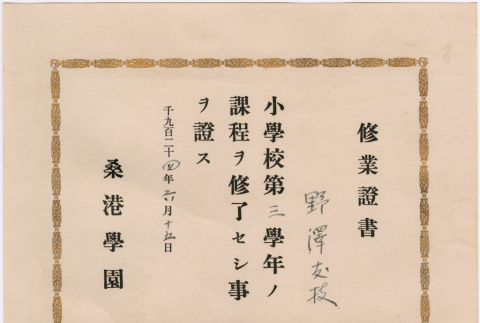 修業證書
野澤友枝
小學校第三學年ノ
課程ヲ修了セシ事
ヲ證ス
千九百二十四年六月十五日
桑港學園